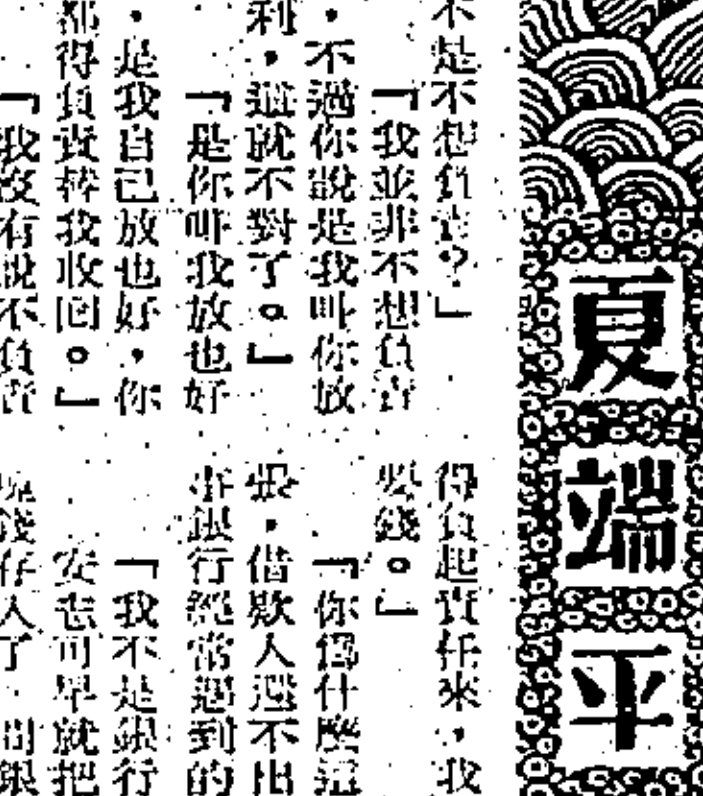 夏端平
不是不想負責？」
「我並非不想負責
，不過你說是我叫你放
利，這就不對了。」
「是你叫我放也好
，是我自己放也好，你
都得負責替我收回。」
「我沒有說不負責
得負起責任來，我
要錢。」
「你為什麼這
，借款人還不出
銀行經常遇到的
「我不是銀行
安志可早就把
錢存入了
銀